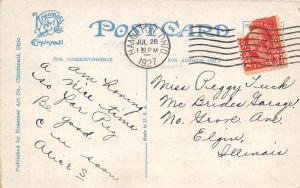 Kraemer Art Co.
Cincinnati
POST CARD
HAMILTON, OHIO
JUL 28
1 30 PM
1927
FOR CORRESPONDENCE
FOR ADDRESS
Published by Kraemer Art Co., Cincinnati, Ohio
MADE IN U.S.A.
Am having
a nice time
so far Peg
Be good.
c u soon.
Miss Peggy Tuck
Mc Brides Garage
No. Grove Ave.
Elgin,
Illinois